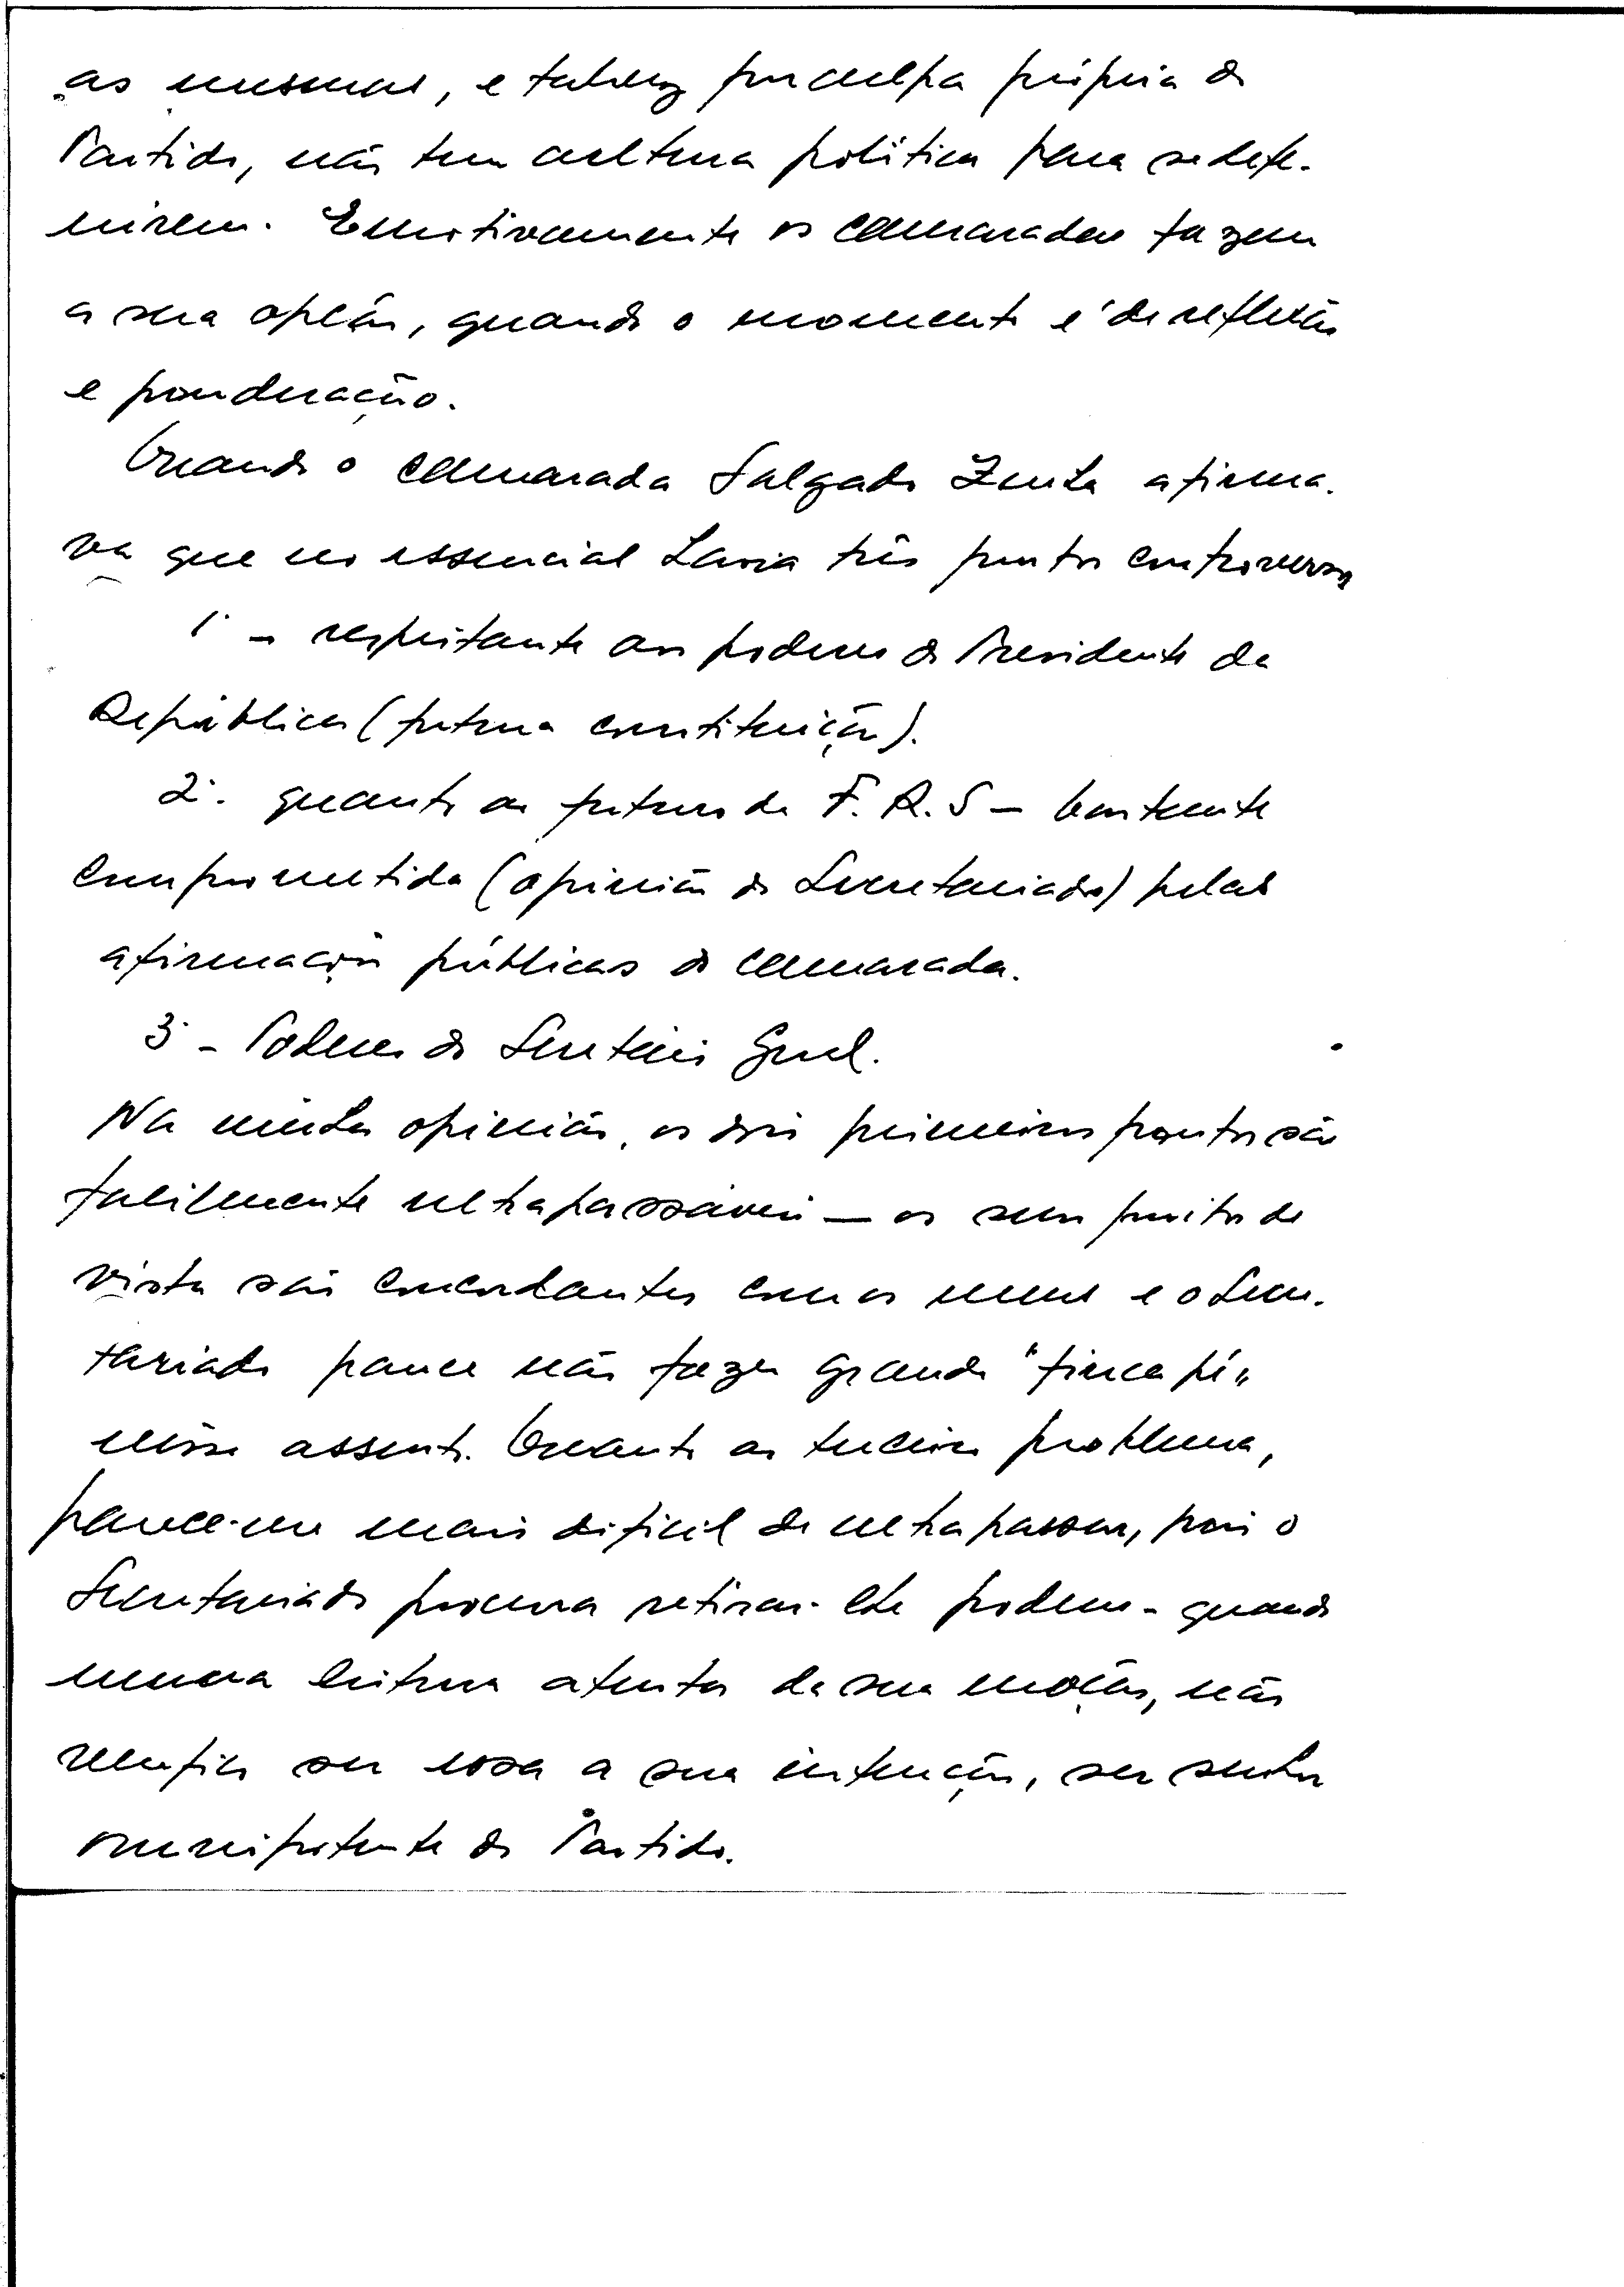 as mesmas, e talvez por culpa própria do
Partido, não tem cultura política para se defi-
nirem. Emotivamente os camaradas fazem
a sua opção, quando o momento é de reflexão
e ponderação.
Quando o camarada Salgado Zenha afirma-
va que no essencial havia três pontos controversos
1º - respeitante aos poderes do Presidente da
República (futura constituição).
2º. quanto ao futuro da F.R.S -
comprometida (opinião do Secretariado) pelas
afirmações públicas do camarada.
3º - Poderes do Secretário Geral.
Na minha opinião, os dois primeiros pontos são
facilmente ultrapassáveis — os seus pontos de
vista são concordantes com os meus e o Secre-
tariado parece não fazer grande "finca pé"
nesse assunto. Quanto ao terceiro problema,
parece-me mais difícil de ultrapassar, pois o
Secretariado procura retirar-lhe poderes - quando
numa leitura atenta da sua moção, não
verifico ser essa a sua intenção, ser senhor
omnipotente do Partido.